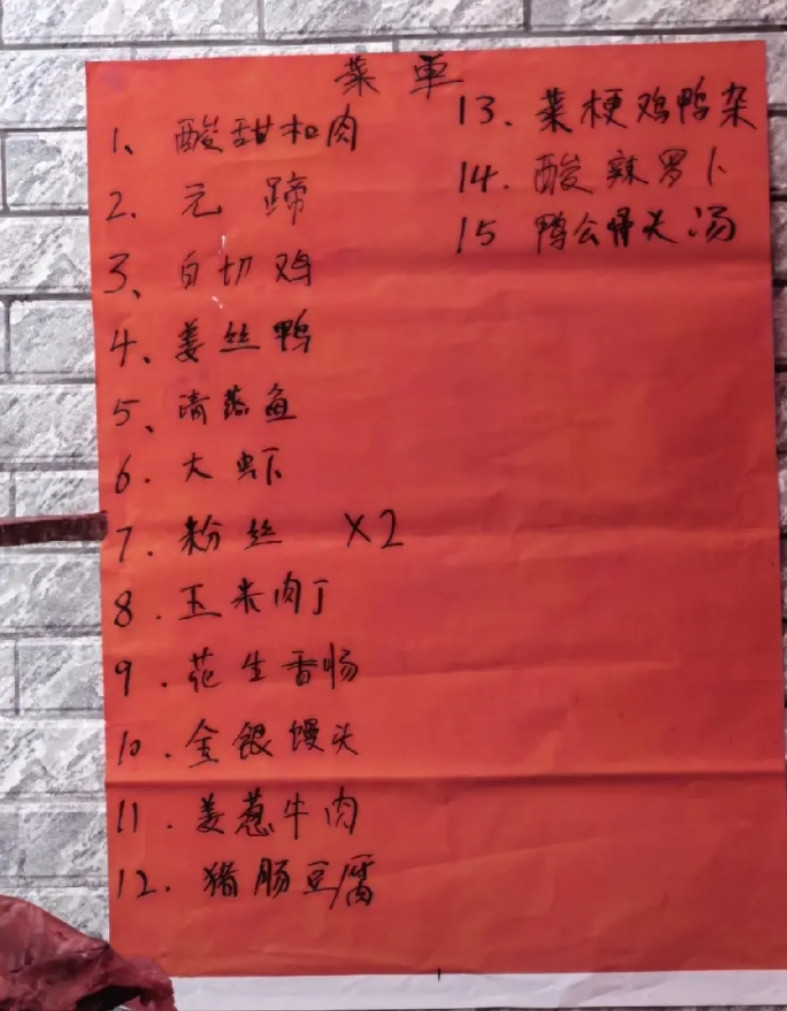 菜單
1、酸甜扣肉
2、元蹄
3、白切鸡
4、姜丝鸭
5、清蒸鱼
6.大虾
7.粉丝 ×2
8.玉米肉丁
9.花生香肠
10.金银馒头
11.姜葱牛肉
12.猪肠豆腐
13.菜梗鸡鸭杂
14.酸辣罗卜
15 鸭公骨头汤